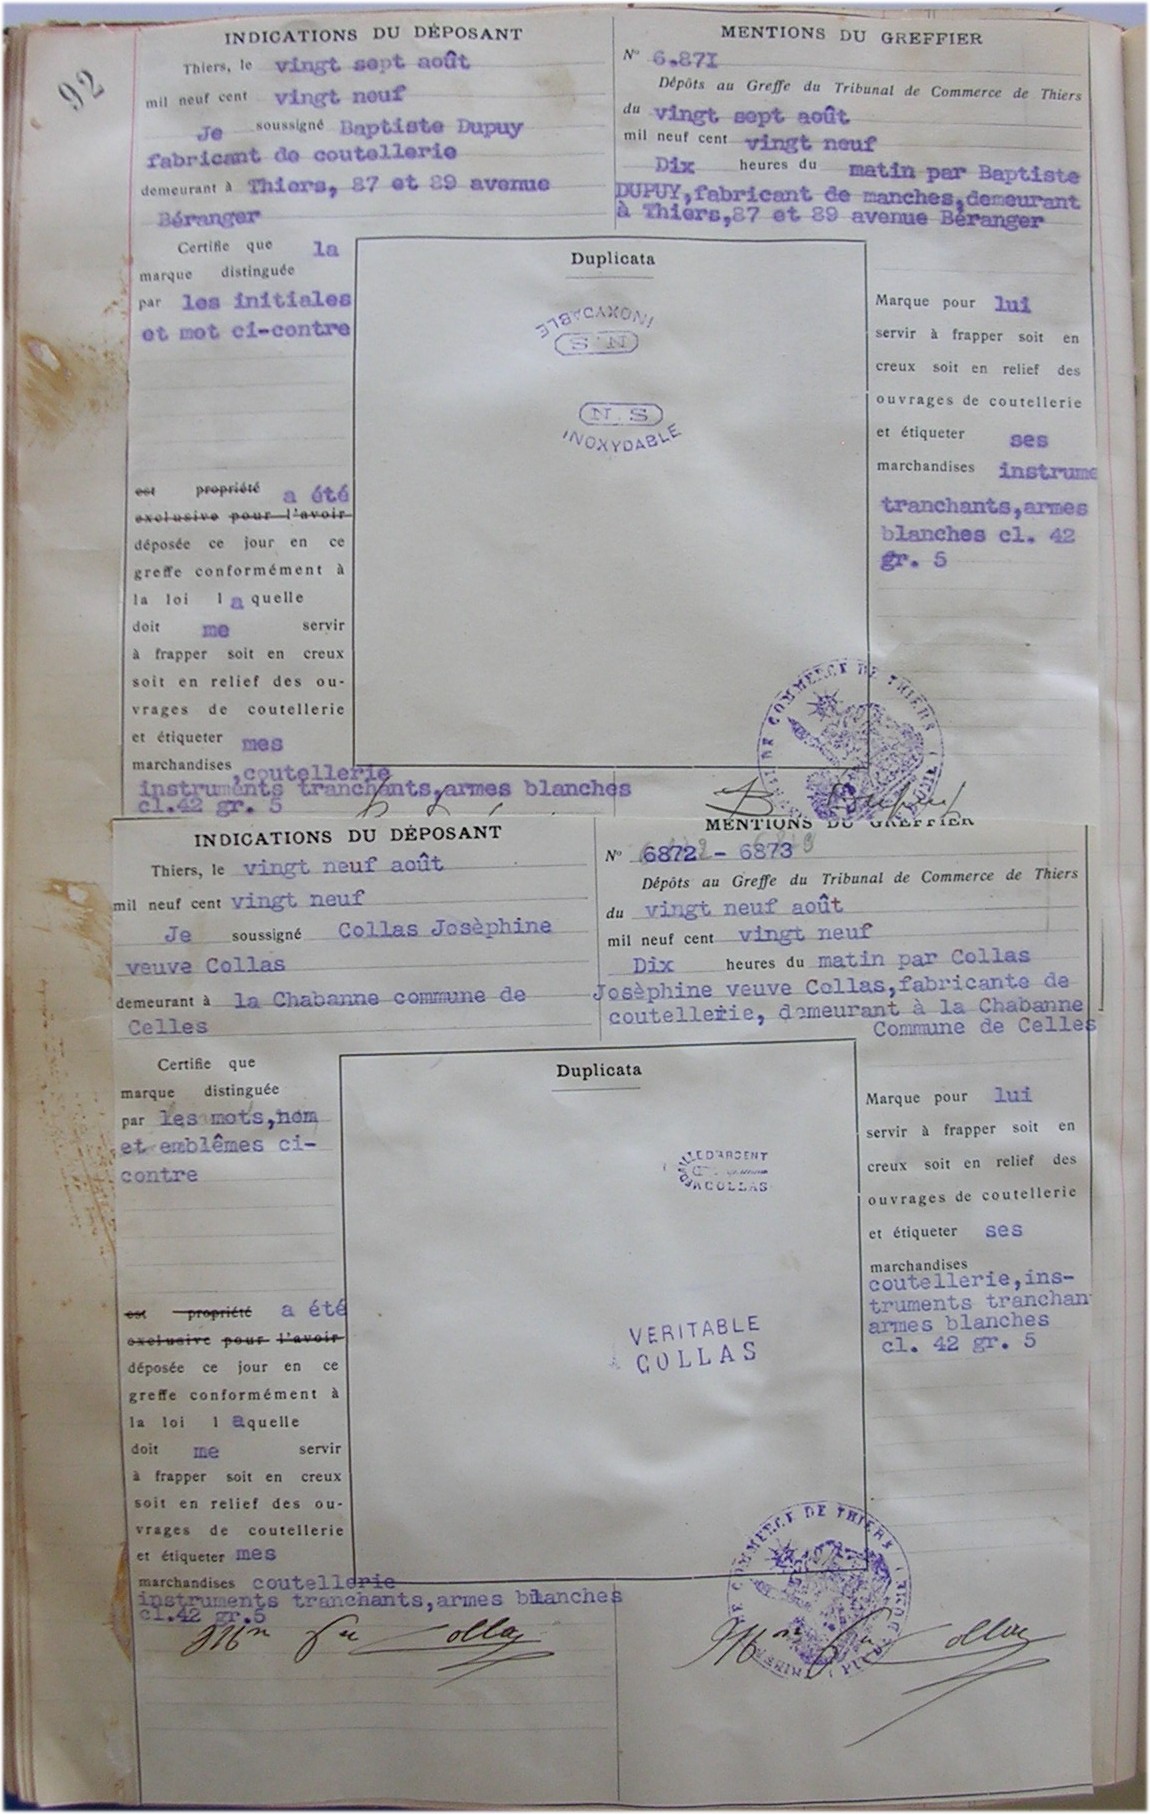 92
INDICATIONS DU DÉPOSANT
Thiers, le vingt sept août
mil neuf cent vingt neuf
Je soussigné Baptiste Dupuy
fabricant de coutellerie
demeurant à Thiers, 87 et 89 avenue
Béranger
MENTIONS DU GREFFIER
N° 6.871
Dépôts au Greffe du Tribunal de Commerce de Thiers
du vingt sept août
mil neuf cent vingt neuf
Dix heures du matin par Baptiste
DUPUY,fabricant de manches,demeurant
à Thiers,87 et 89 avenue Béranger
Certifie que la
marque distinguée
par les initiales
et mot ci-contre
est propriété a été
exclusive pour l'avoir
déposée ce jour en ce
greffe conformément à
la loi l a quelle
doit me servir
à frapper soit en creux
soit en relief des ou-
vrages de coutellerie
et étiqueter mes
marchandises ,coutellerie
instruments tranchants,armes blanches
cl.42 gr. 5
Duplicata
INOXYDABLE
N.S
N.S
INOXYDABLE
Marque pour lui
servir à frapper soit en
creux soit en relief des
ouvrages de coutellerie
et étiqueter ses
marchandises instrume
tranchants,armes
blanches cl. 42
gr. 5
DE COMMERCE DE THIERS
B Dupuy
INDICATIONS DU DÉPOSANT
Thiers, le vingt neuf août
mil neuf cent vingt neuf
Je soussigné Collas Josèphine
veuve Collas
demeurant à la Chabanne commune de
Celles
MENTIONS DU GREFFIER
N° 6872 - 6873
Dépôts au Greffe du Tribunal de Commerce de Thiers
du vingt neuf août
mil neuf cent vingt neuf
Dix heures du matin par Collas
Josèphine veuve Collas,fabricante de
coutellerie, demeurant à la Chabanne
Commune de Celles
Certifie que
marque distinguée
par les mots,nom
et emblêmes ci-
contre
est propriété a été
exclusive pour l'avoir
déposée ce jour en ce
greffe conformément à
la loi l aquelle
doit me servir
à frapper soit en creux
soit en relief des ou-
vrages de coutellerie
et étiqueter mes
marchandises coutellerie
instruments tranchants,armes blanches
cl.42 gr.5
Duplicata
D'ARGENT
COLLAS
VERITABLE
COLLAS
Marque pour lui
servir à frapper soit en
creux soit en relief des
ouvrages de coutellerie
et étiqueter ses
marchandises
coutellerie,ins-
truments tranchan
armes blanches
cl. 42 gr. 5
DE COMMERCE DE THIERS
Collas
Collas